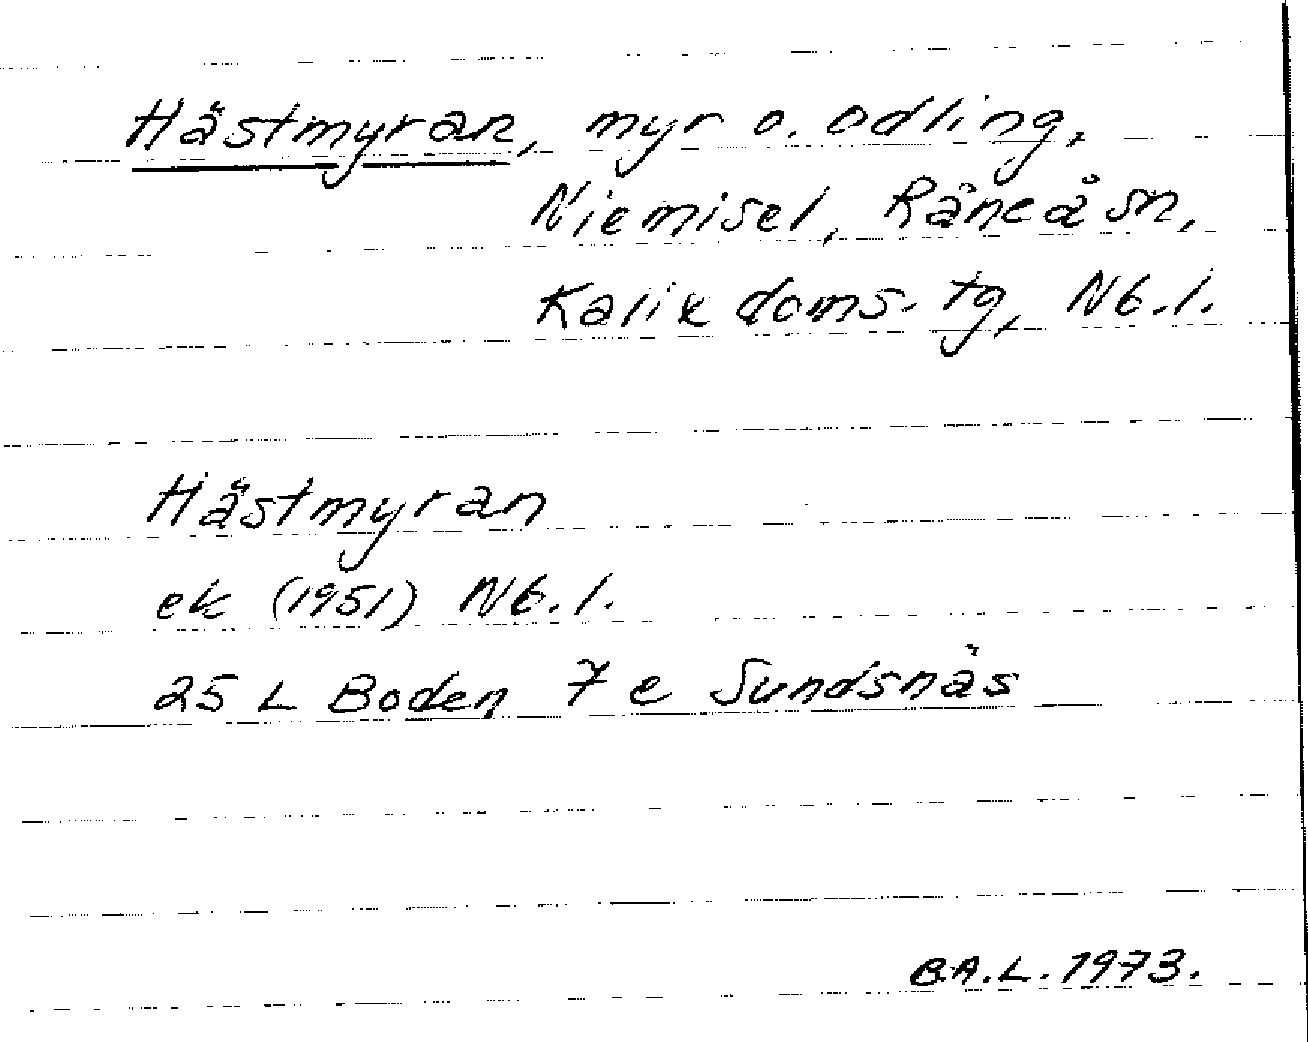 Hästmyran, myr o. odling,
Niemisel, Råneå sn,
Kalix doms. tg, Nb. l.
Hästmyran
ek (1951) Nb. l.
25 L Boden 7 e Sundsnäs
B.A.L. 1973.